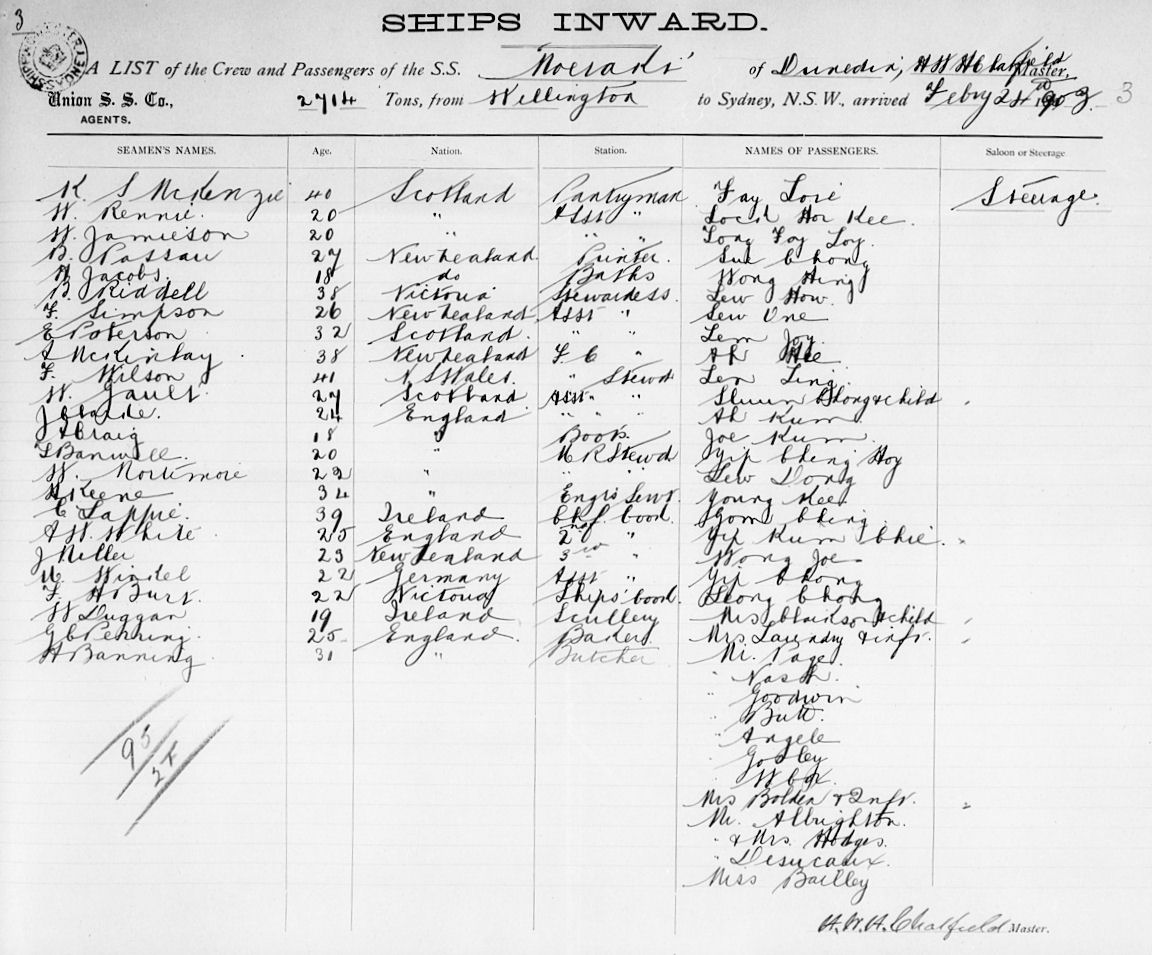 3
SHIPS INWARD.
A LIST of the Crew and Passengers of the S.S. Moeraki of Dunedin, H W H Chatfield Master,
Union S. S. Co., 2714 Tons, from Wellington to Sydney, N.S.W., arrived Febry 24 1903 3
AGENTS.
SEAMEN'S NAMES. Age. Nation. Station. NAMES OF PASSENGERS. Saloon or Steerage.
K. S McKenzie 40 Scotland Pantryman Fay Loie Steerage.
W. Rennie. 20 " Asst " Hor Kee.
W. Jamieson 20 " " " Long Foy Loy.
B. Passau 27 New Zealand Printer. Sue Chong
H Jacobs. 18 do Baths Wong Hing
B. Riddell 38 Victoria Stewardess. Lew How.
F. Simpson 26 New Zealand Asst " Sew One
E Paterson 32 Scotland. " " Lem Joy.
A McKinlay 38 New Zealand F. C " Ah Hee
F. Wilson 41 N S Wales. " Stewd Len Ling
W. Gault 27 Scotland Asst " " Chong & child
J Clarke. 24 England " " " Ah Kum
J A Craig 18 " Book. Joe Kum
T Banwell. 20 " M R Stewd Yip Cheng Hoy
W. Mortimore 22 " " " Lew Dong
H Keene 34 " Engrs Servt. Young Kee
C Lappie. 39 Ireland Chf. Cook. Gom Cheng
A W. White 25 England 2nd " Yip Kum Chie.
J Miller 23 New Zealand 3rd " Wong Joe
M Windel 22 Germany Asst " Yip Chong
F. H Burt. 22 Victoria Ships' Cook. Leong Chong
W Duggan 19 Ireland Scullery Mrs Clarkson & child
G C Penning. 25 England. Baker Mrs. Laundry & infr.
H Banning 31 " Butcher Mr. Page.
" Nash.
" Goodwin
" Butt.
" Angele
" Gosley
" Wood
Mrs Bolden & Infr.
Mr. Albrighton.
" & Mrs. Hodges.
" Desucaux.
Miss Bailley
95
24
H. W. H. Chatfield Master.